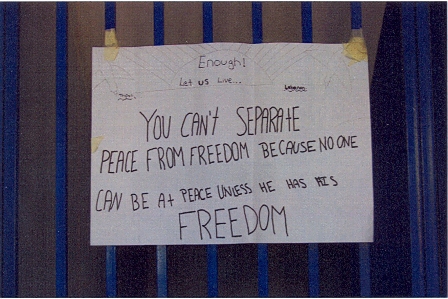 Enough!
Let us Live...
Lebanon.
YOU CAN'T SEPARATE
PEACE FROM FREEDOM BECAUSE NO ONE
CAN BE At PEACE UNLESS HE HAS HIS
FREEDOM